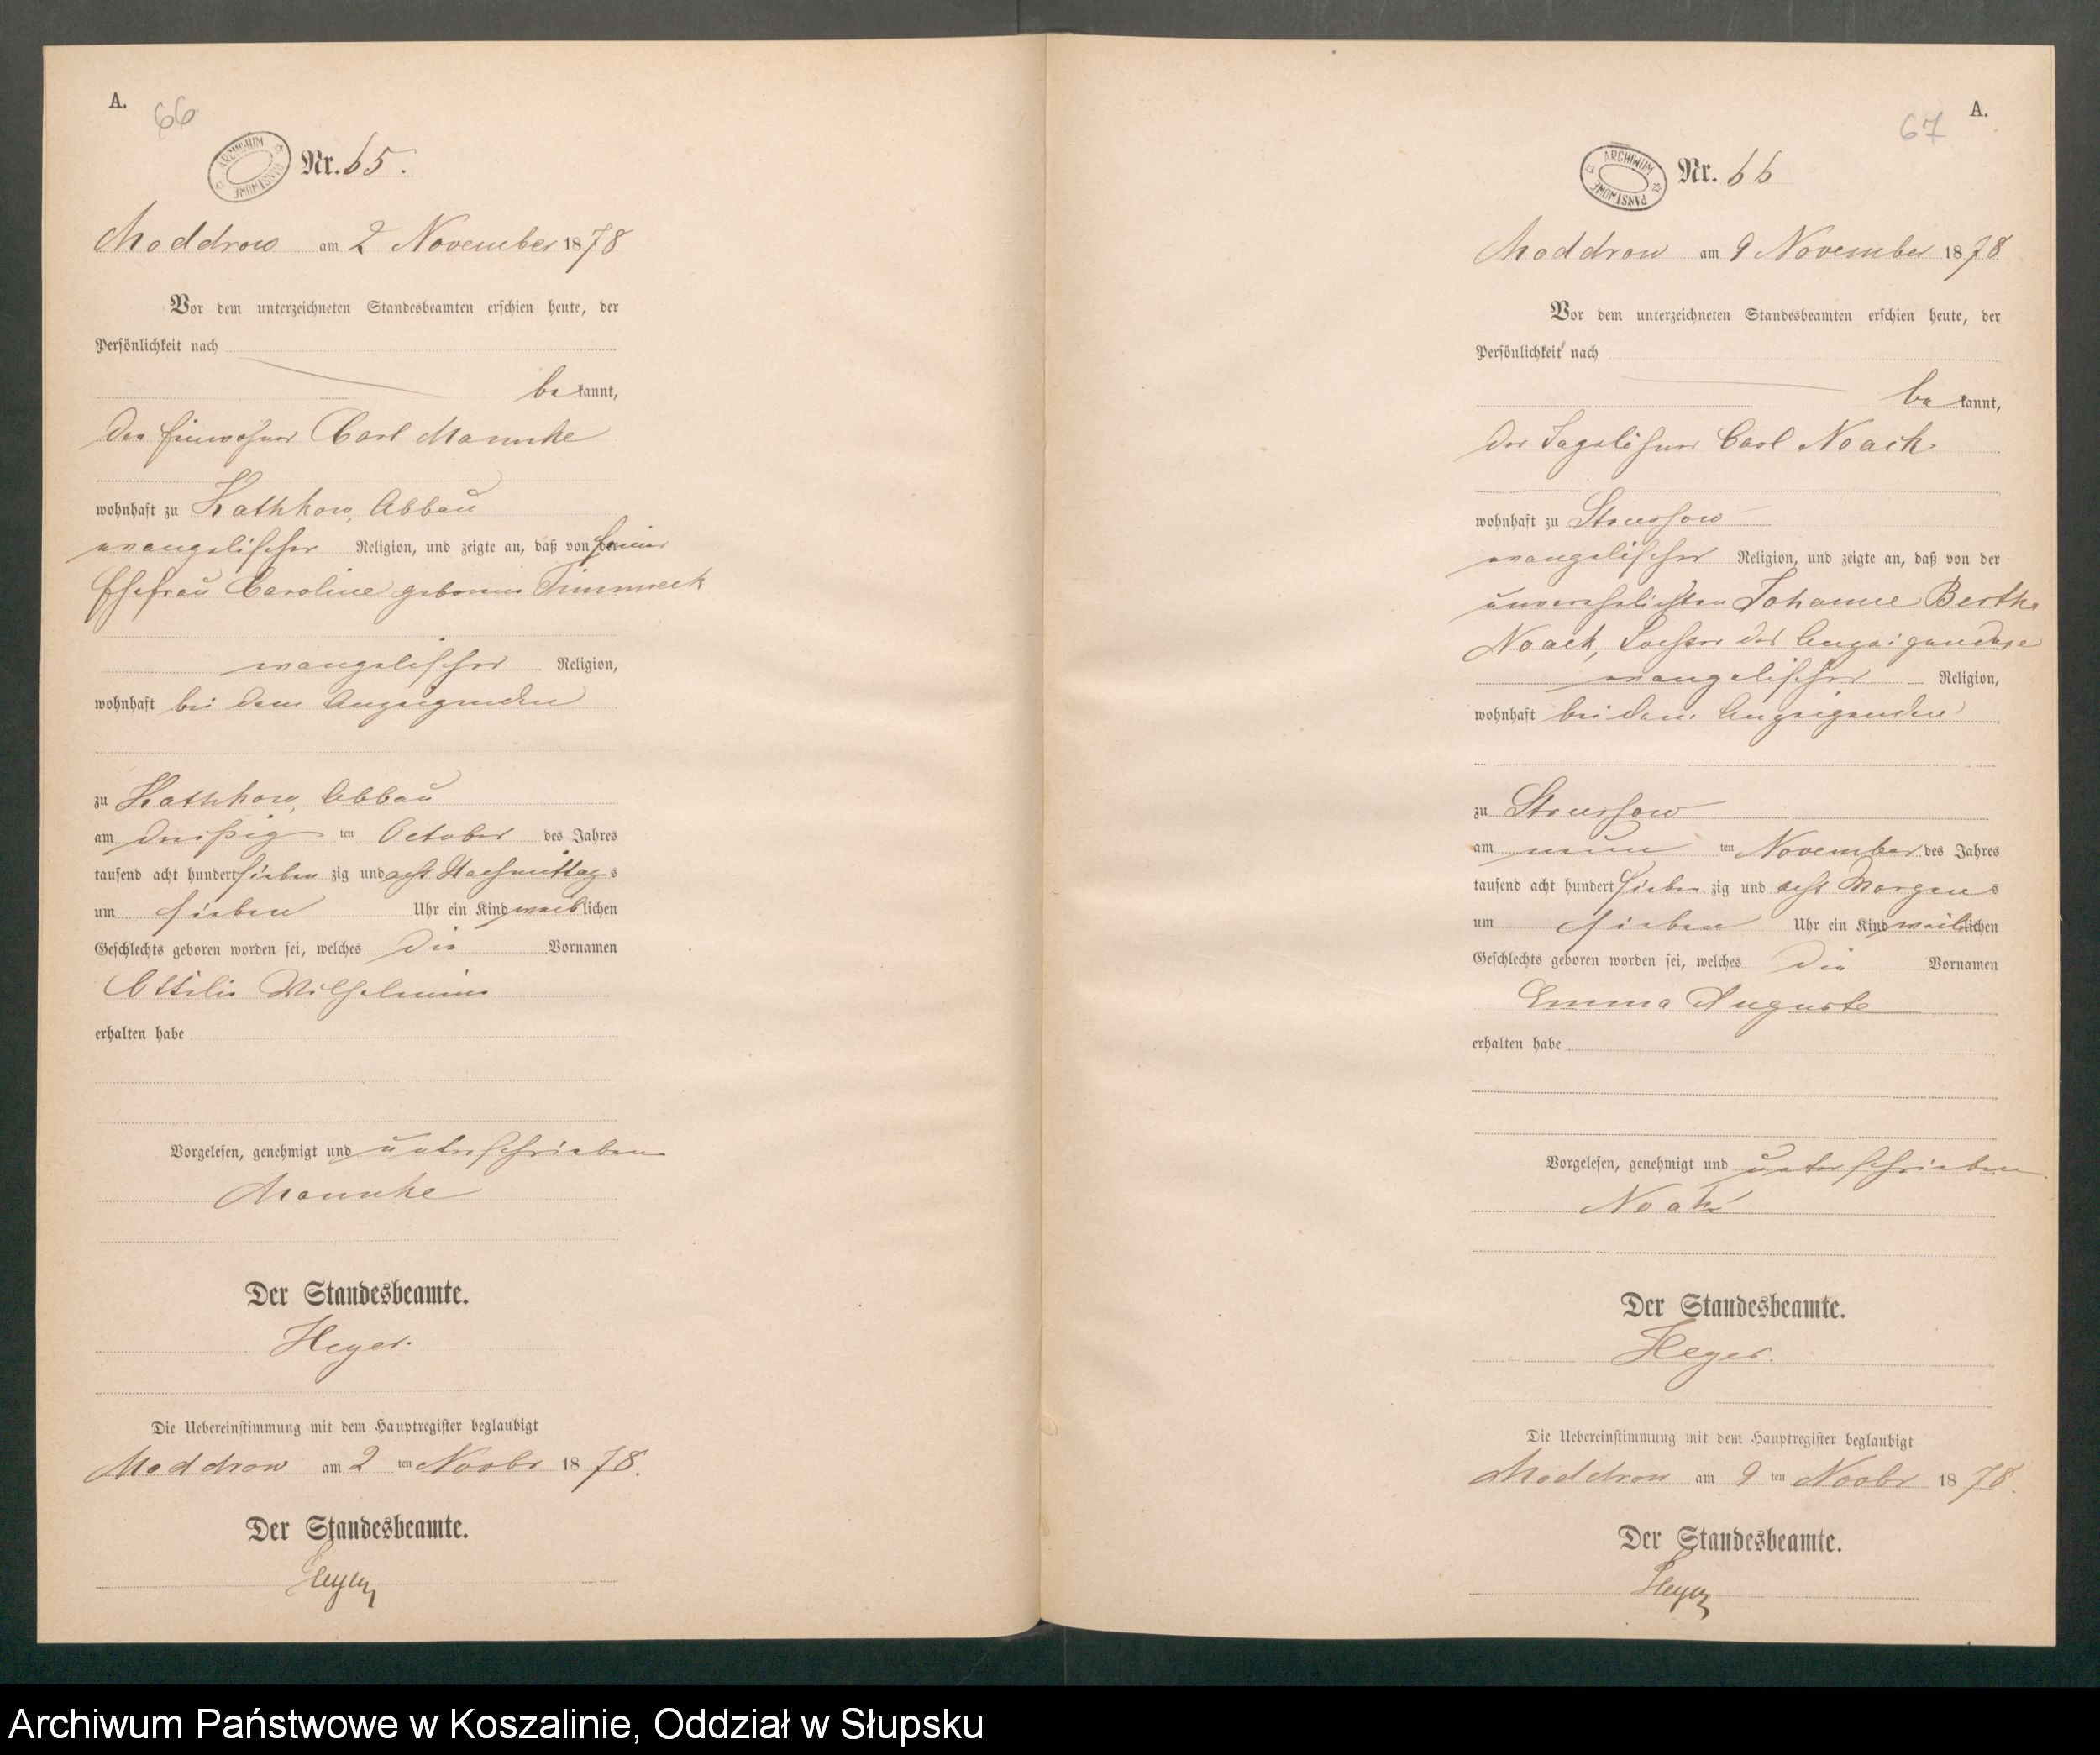 A.
66
ARCHIWUM PAŃSTWOWE
Nr. 65.
Moddrow am 2 November 1878
Vor dem unterzeichneten Standesbeamten erschien heute, der
Persönlichkeit nach
be kannt,
der Einwohner Carl Mannke
wohnhaft zu Kathkow, Abbau
evangelischer Religion, und zeigte an, daß von der seiner
Ehefrau Caroline geborene
evangelischer Religion,
wohnhaft bei dem Anzeigenden
zu Kathkow, Abbau
am dreißig ten October des Jahres
tausend acht hundert sieben zig und acht Nachmittags
um sieben Uhr ein Kind weiblichen
Geschlechts geboren worden sei, welches die Vornamen
Ottilie Wilhelmine
erhalten habe
Vorgelesen, genehmigt und unterschrieben
Mannke
Der Standesbeamte.
Heyer.
Die Uebereinstimmung mit dem Hauptregister beglaubigt
Moddrow am 2 ten Novbr 1878.
Der Standesbeamte.
Heyer
A.
67
ARCHIWUM PAŃSTWOWE
Nr. 66
Moddrow am 9 November 1878
Vor dem unterzeichneten Standesbeamten erschien heute, der
Persönlichkeit nach
be kannt,
der Tagelöhner Carl Noack
wohnhaft zu Strussow
evangelischer Religion, und zeigte an, daß von der
unverehelichten Johanne Bertha
Noack, Tochter des Anzeigenden
evangelischer Religion,
wohnhaft bei dem Anzeigenden
zu Strussow
am neun ten November des Jahres
tausend acht hundert sieben zig und acht Morgens
um sieben Uhr ein Kind weiblichen
Geschlechts geboren worden sei, welches die Vornamen
Emma Auguste
erhalten habe
Vorgelesen, genehmigt und unterschrieben
Noak
Der Standesbeamte.
Heyer.
Die Uebereinstimmung mit dem Hauptregister beglaubigt
Moddrow am 9 ten Novbr 1878.
Der Standesbeamte.
Heyer
Archiwum Państwowe w Koszalinie, Oddział w Słupsku